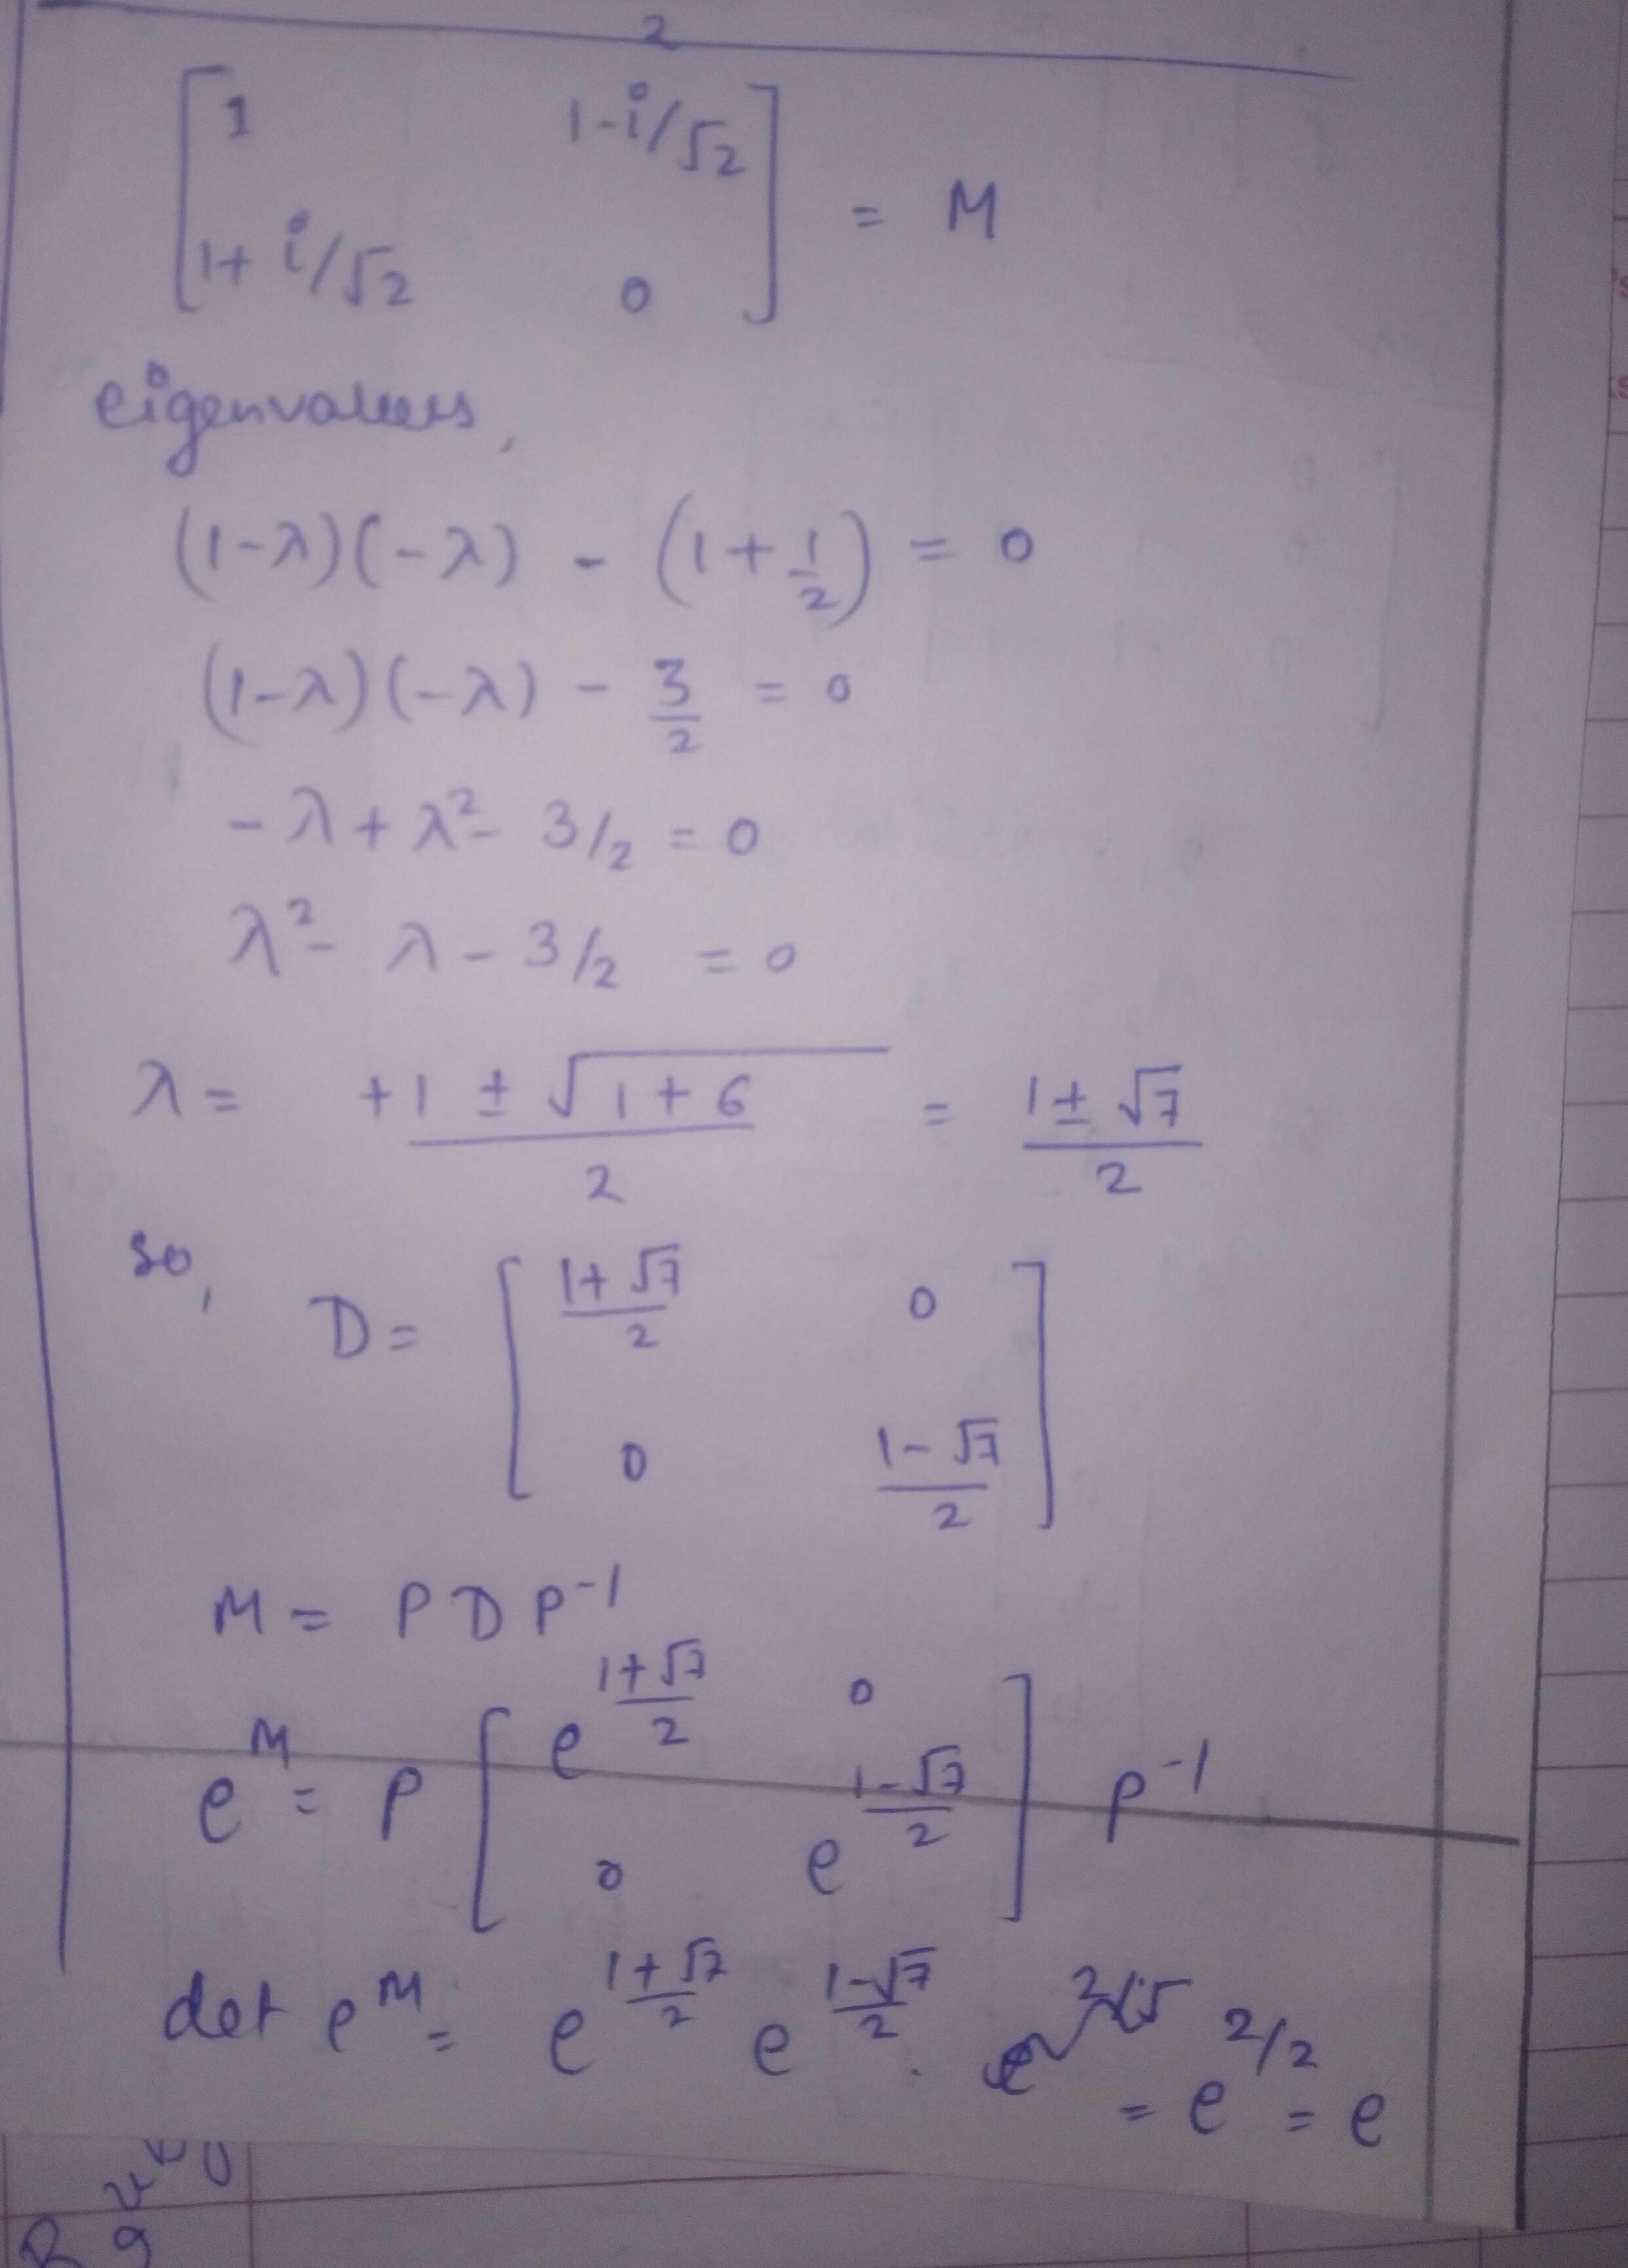 2
[1 1-i/√2
1+i/√2 0] = M
eigenvalues,
(1-λ)(-λ) - (1+1/2) = 0
(1-λ)(-λ) - 3/2 = 0
-λ+λ²- 3/2 = 0
λ²- λ - 3/2 = 0
λ = +1 ± √1+6 / 2 = 1±√7 / 2
so,
D = [1+√7/2 0
0 1-√7/2]
M = P D P⁻¹
e^M = P [e^(1+√7/2) 0
0 e^(1-√7/2)] P⁻¹
det e^M = e^(1+√7/2) e^(1-√7/2) . = e^(2/2) = e